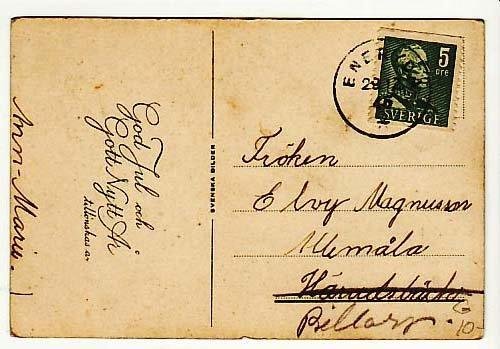 God Jul och
Gott Nytt År
tillönskas av
Ann-Marie.
SVENSKA BILDER
5
ÖRE
SVERIGE
29
Fröken
Elvy Magnusson
Ulemåla
10-